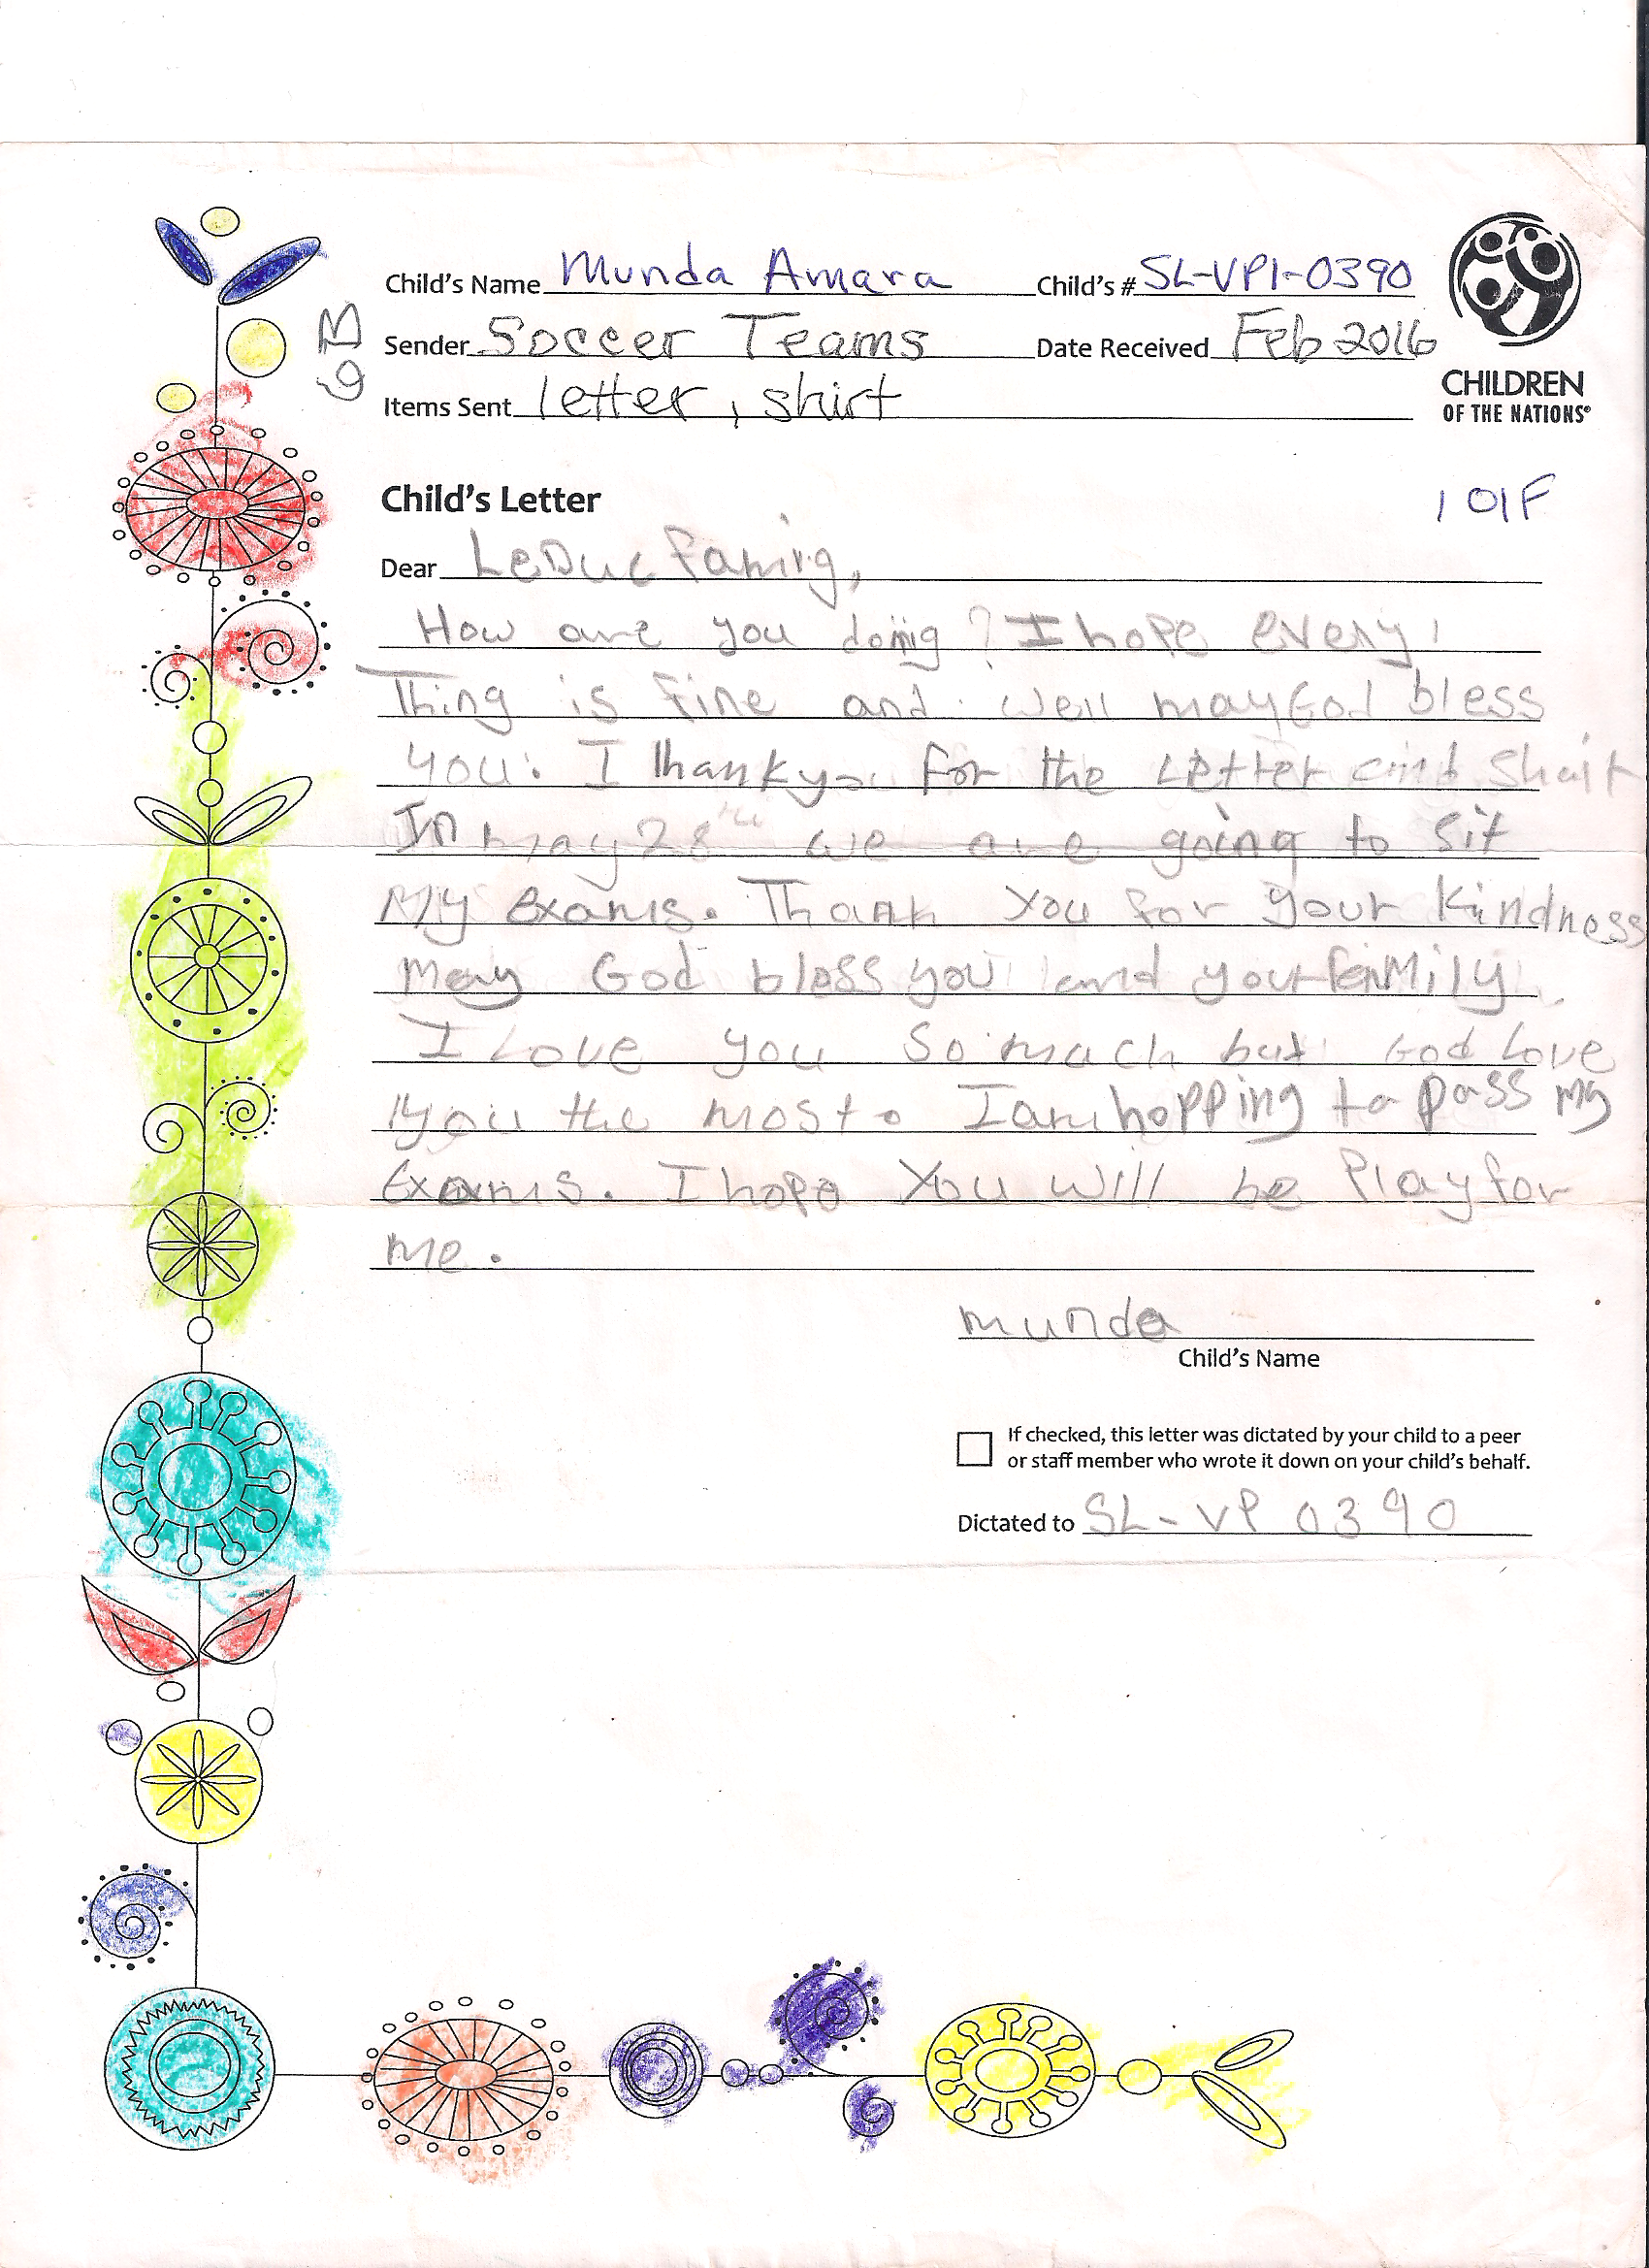 Child's Name Munda Amara Child's # SL-VP1-0390
Sender Soccer Teams Date Received Feb 2016
Items Sent letter, shirt
GB
CHILDREN
OF THE NATIONS®
Child's Letter
101F
Dear LeDuc
How are you doing? I hope every
Thing is fine and well may God bless
you. I thank you for the Letter and Shait
In may 28th we are going to sit
My exams. Thank You for your Kindness
May God bless you and your fenMily
I Love you So much but God Love
you the most. I am hopping to pass my
Exams. I hope You will be Play for
me.
munda
Child's Name
If checked, this letter was dictated by your child to a peer
or staff member who wrote it down on your child's behalf.
Dictated to SL-VP 0390